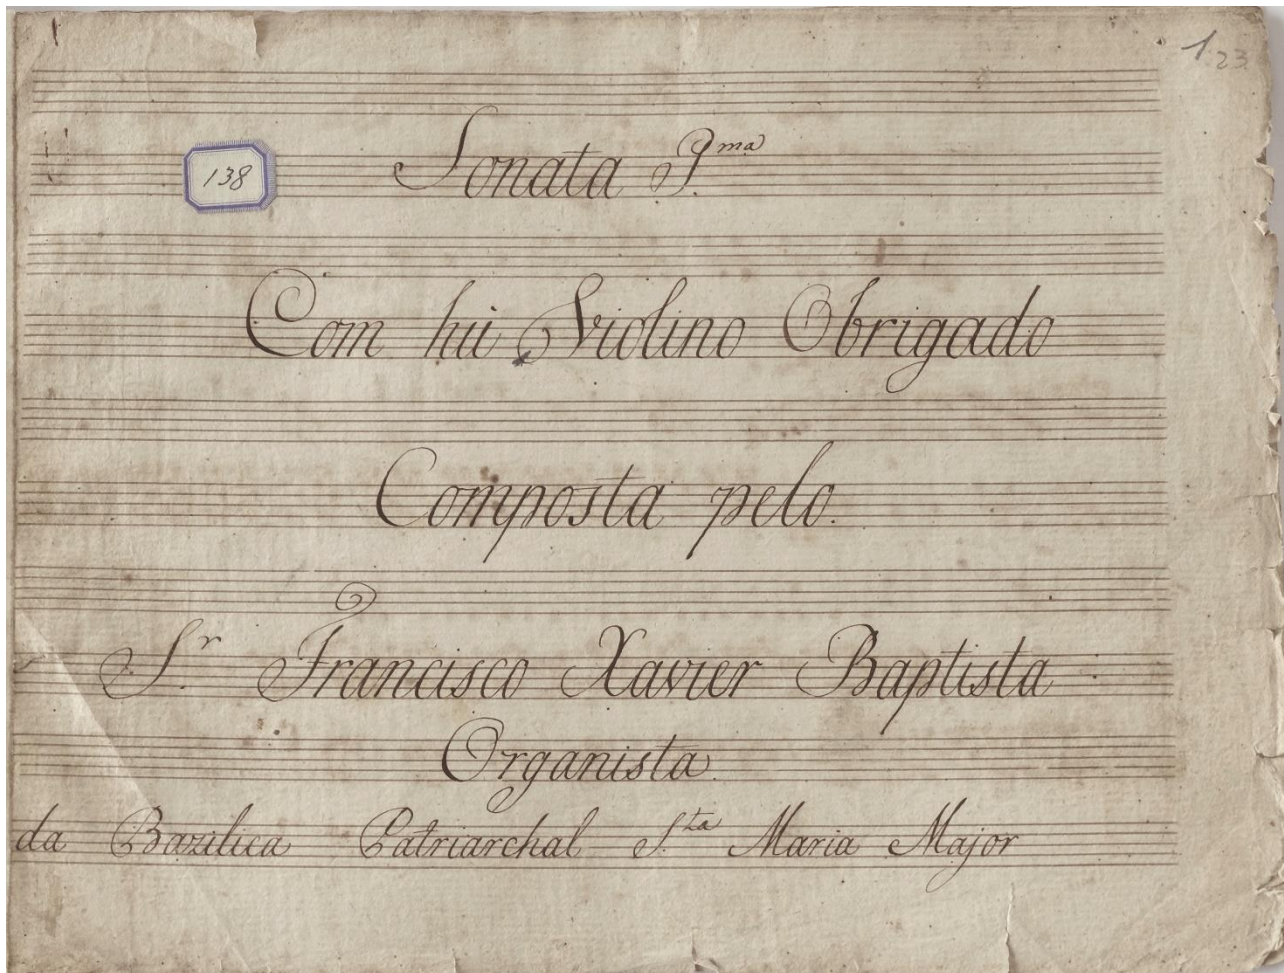 1.23.
138
Sonata P.ma
Com hũ Violino Obrigado
Composta pelo.
S.r Francisco Xavier Baptista
Organista
da Bazilica Patriarchal S.ta Maria Major